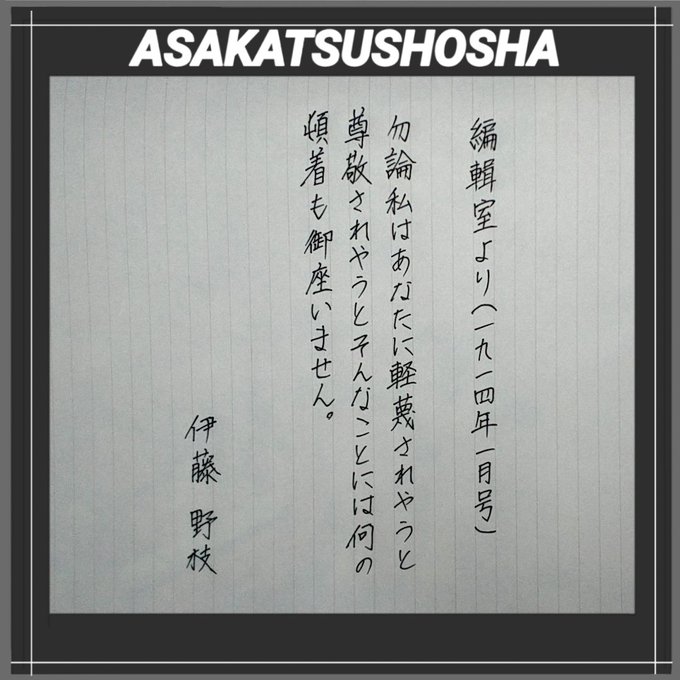 ASAKATSUSHOSHA
編輯室より(一九一四年一月号)
勿論私はあなたに軽蔑されやうと
尊敬されやうとそんなことには何の
頓着も御座いません。
伊藤 野枝